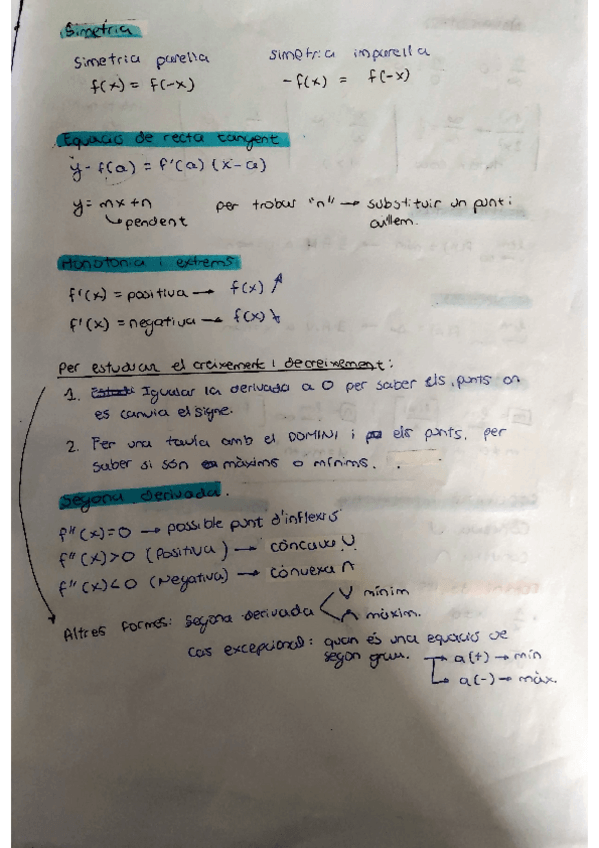 Simetria
Simetria parella simetria imparella
f(x) = f(-x) -f(x) = f(-x)
Equació de recta tangent
y - f(a) = f'(a) (x-a)
y = mx+n per trobar "n" → substituir un punt i
↳ pendent aïllem.
Monotonia i extrems
f'(x) = positiva → f(x) ↗
f'(x) = negativa → f(x) ↘
Per estudiar el creixement i decreixement:
1. Igualar la derivada a 0 per saber els punts on
es canvia el signe.
2. Fer una taula amb el DOMINI i els punts, per
saber si són màxims o mínims.
Segona derivada.
f''(x)=0 → possible punt d'inflexió
f''(x)>0 (Positiva) → còncava ∪
f''(x)<0 (Negativa) → cònvexa ∩
Altres formes: segona derivada < ∪ mínim
∩ màxim.
cas excepcional: quan és una equació de
segon grau. → a(+) → mín
↳ a(-) → màx.